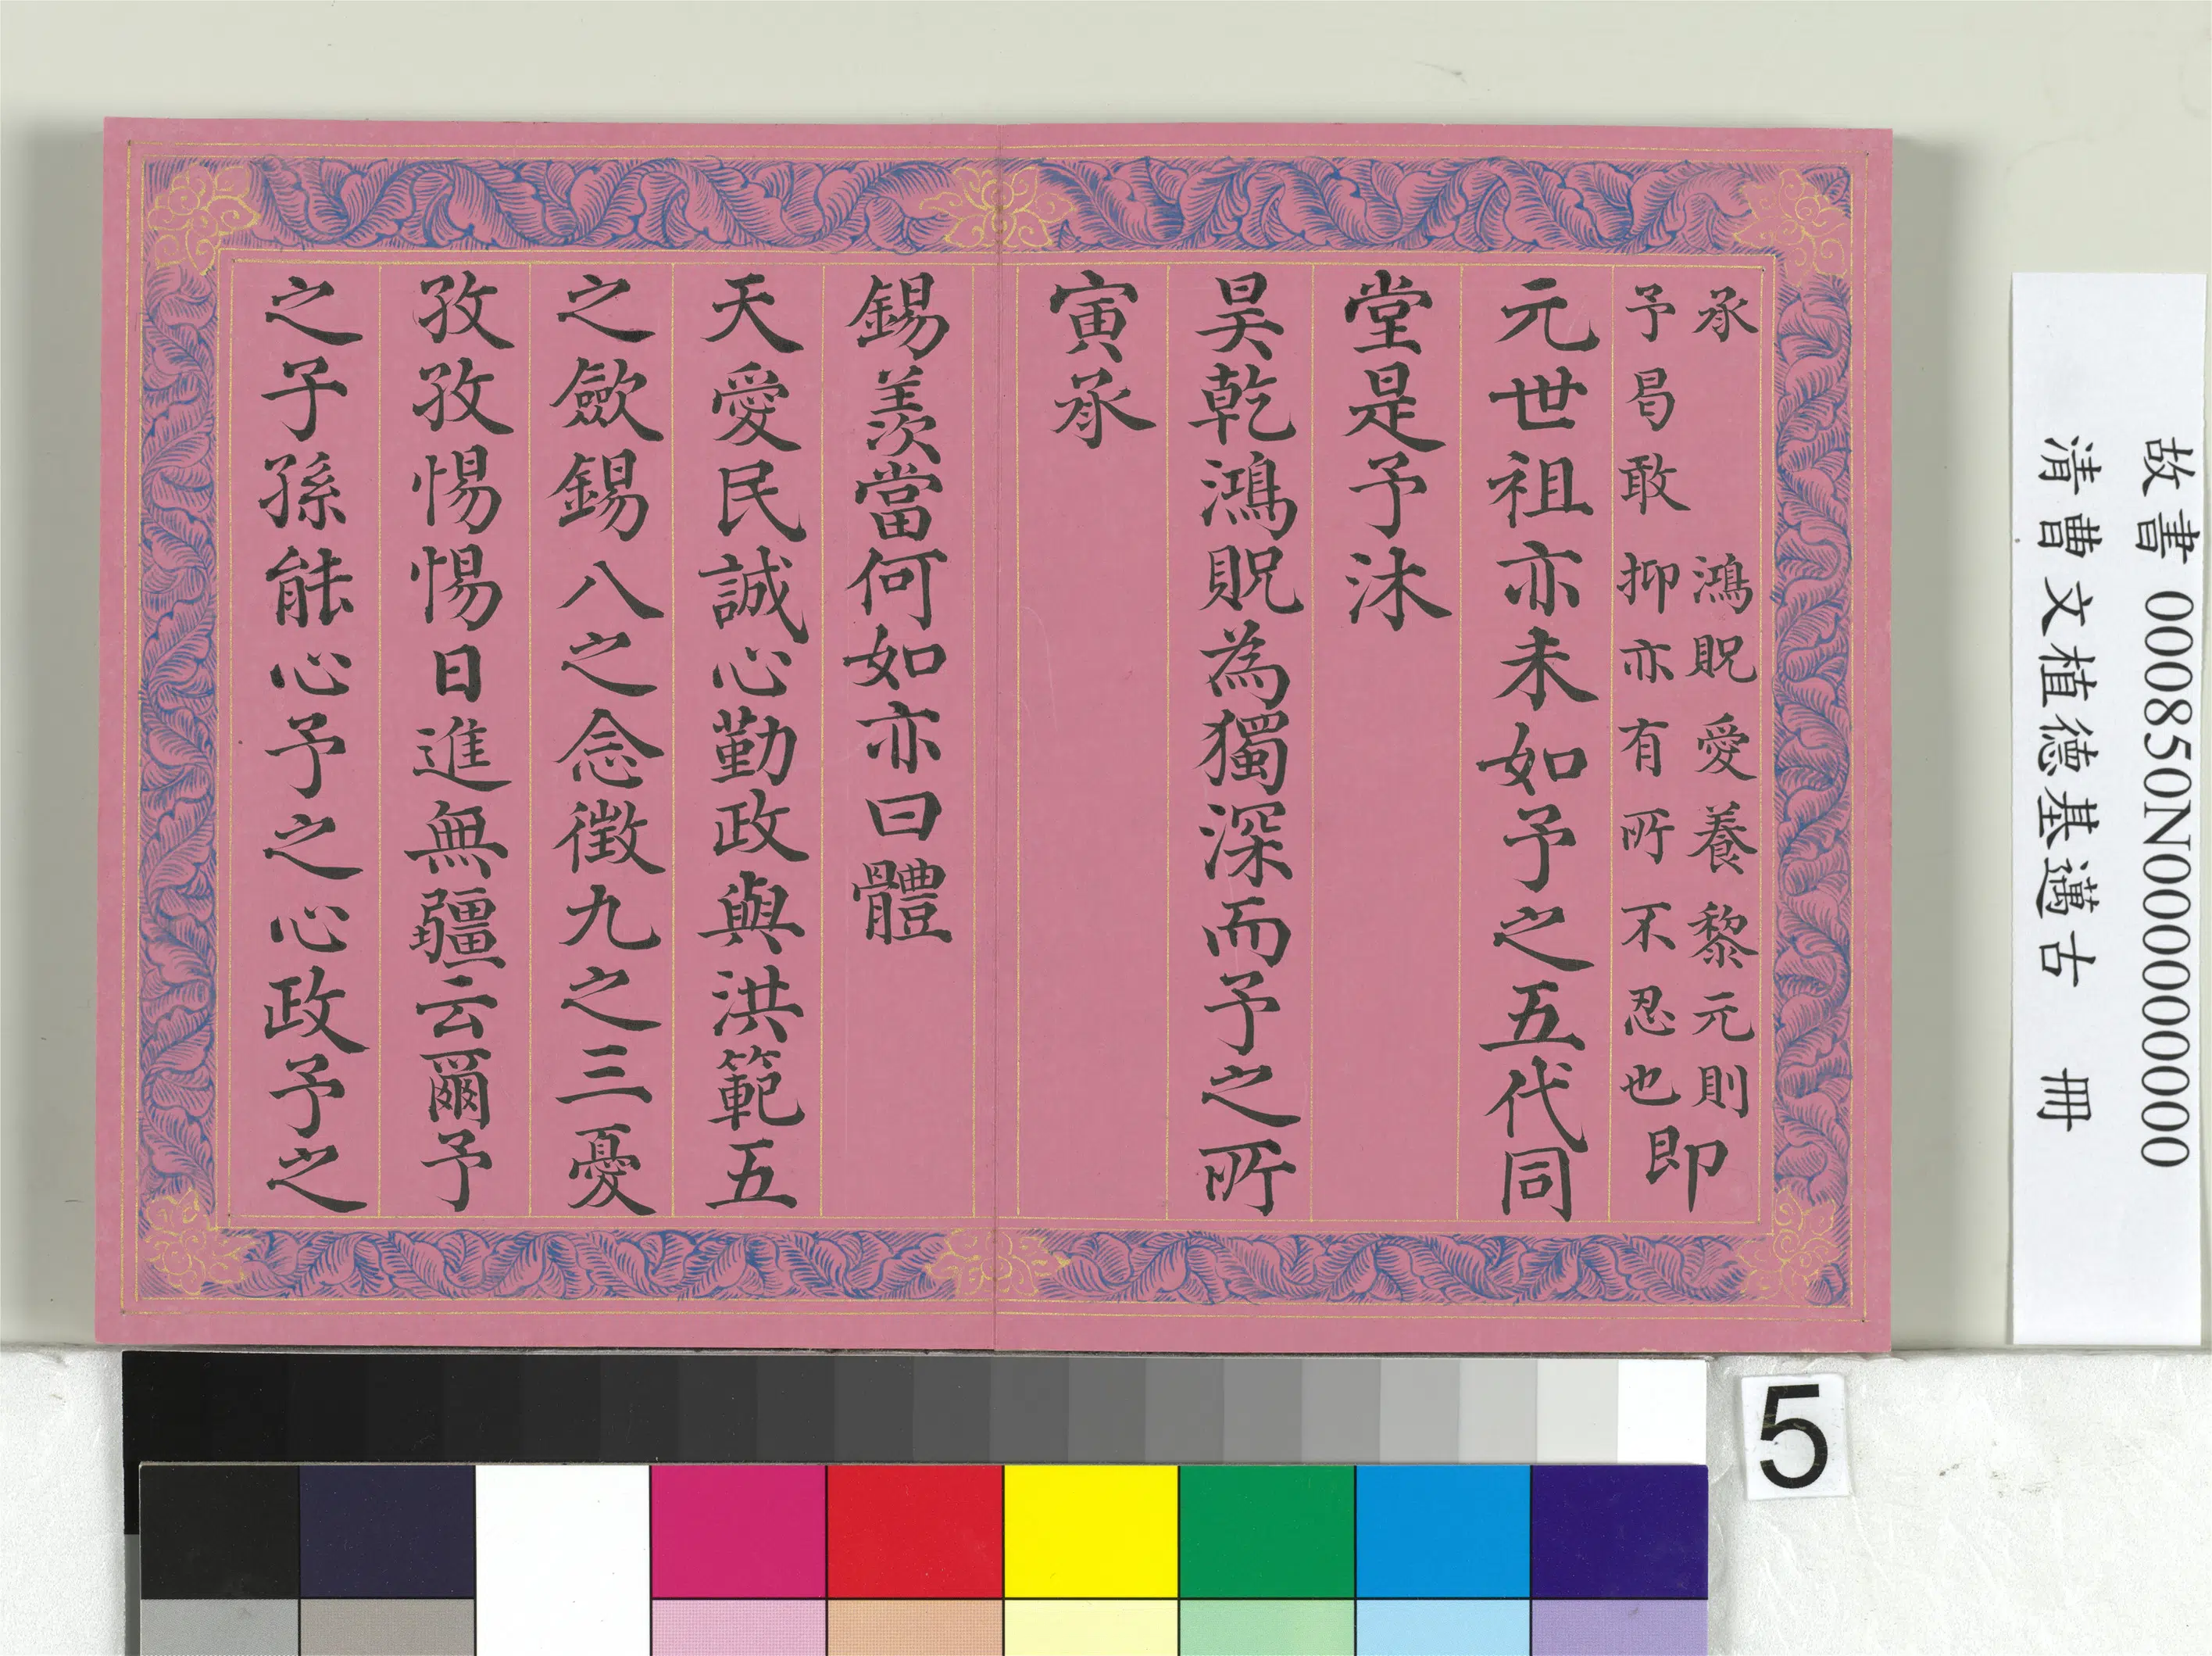 承　鴻貺愛養黎元則
予曷敢抑亦有所不忍也
即
元世祖亦未如予之五代同
堂是予沐
昊乾鴻貺為獨深而予之所
寅承
錫羨當何如亦曰體
天愛民誠心勤政與洪範五
之歛錫八之念徵九之三憂
孜孜惕惕日進無疆云爾予
之子孫能心予之心政予之
故書 000850N000000000
清曹文植德基邁古　冊
5